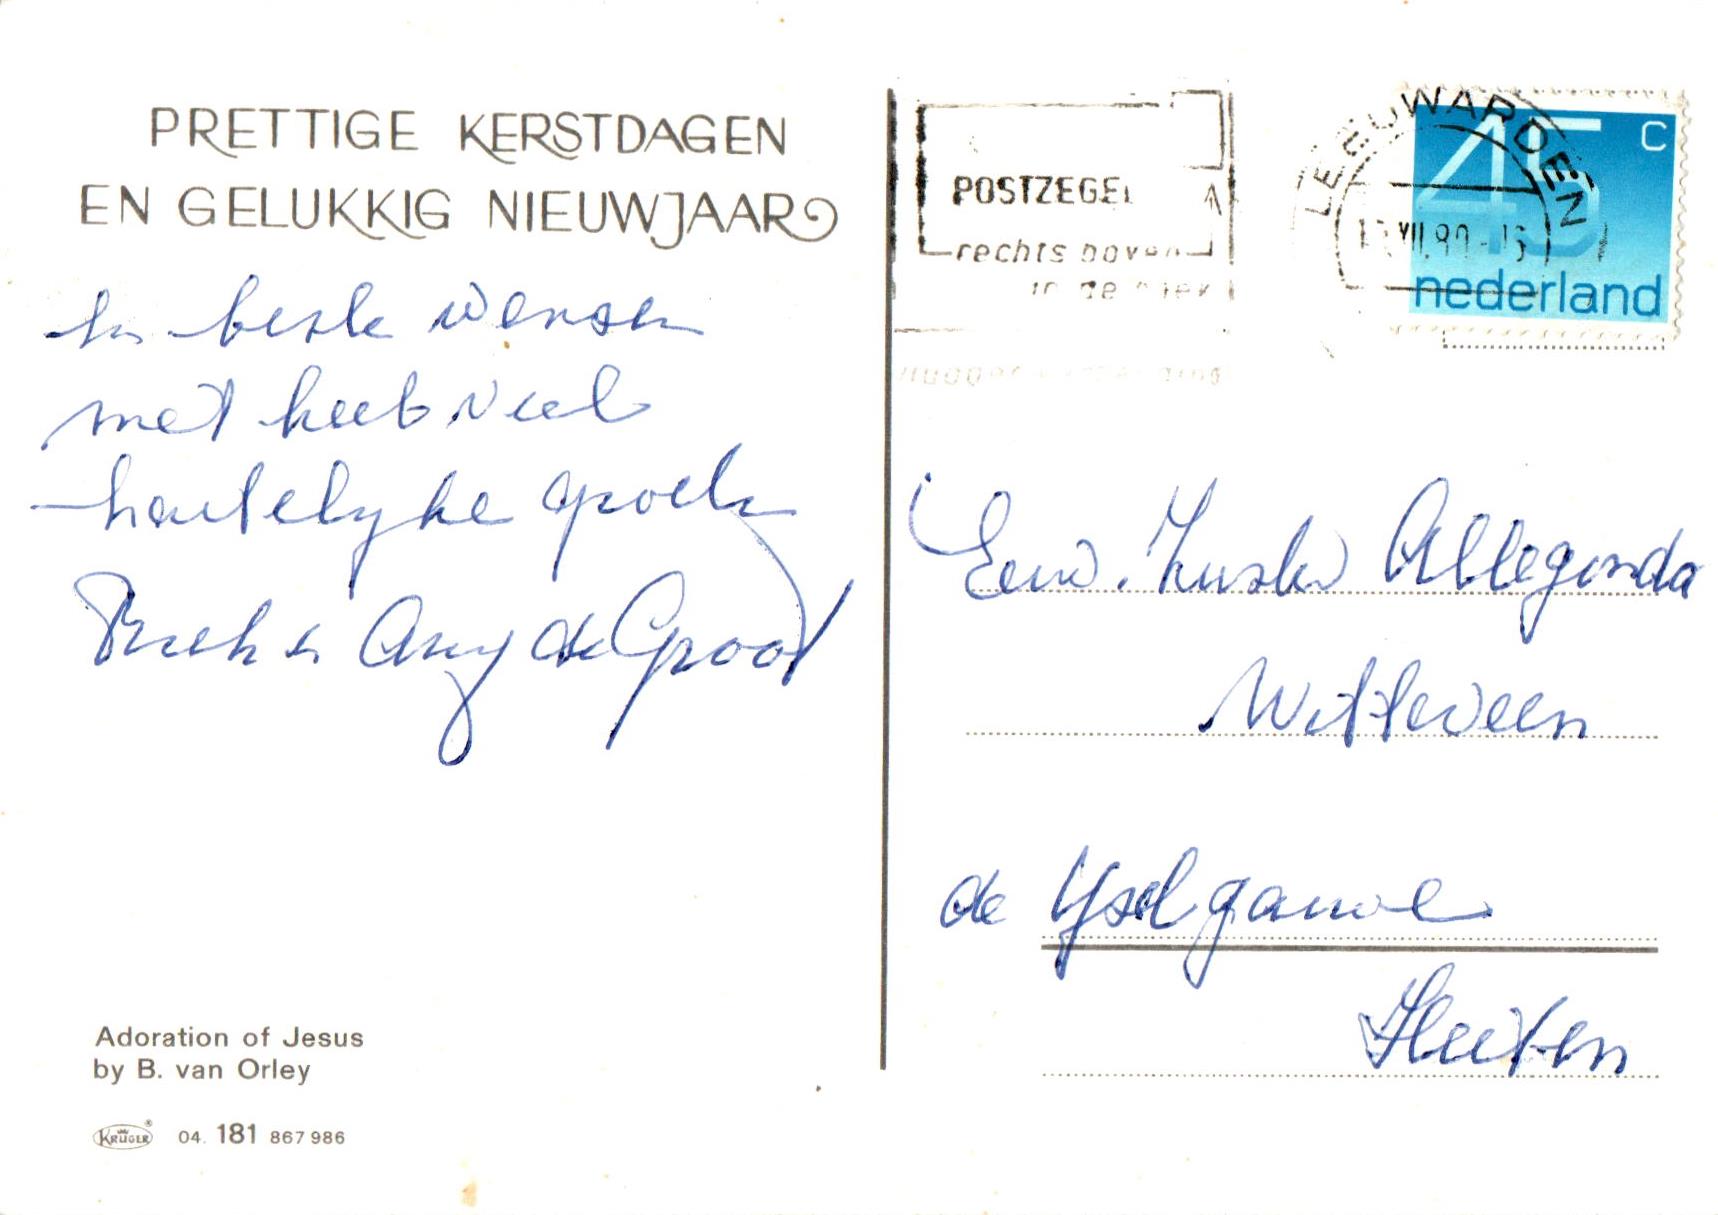 PRETTIGE KERSTDAGEN
EN GELUKKIG NIEUWJAAR
en beste wensen
met heel veel
hartelyke groeten
en Any de Groot
Adoration of Jesus
by B. van Orley
KRÜGER 04. 181 867 986
POSTZEGEL
rechts boven
in de hoek
LEEUWARDEN
XII.80
45 C
nederland
Eerw. Zuster Allegonda
Witteveen
de Ysselgouwe
Heeten